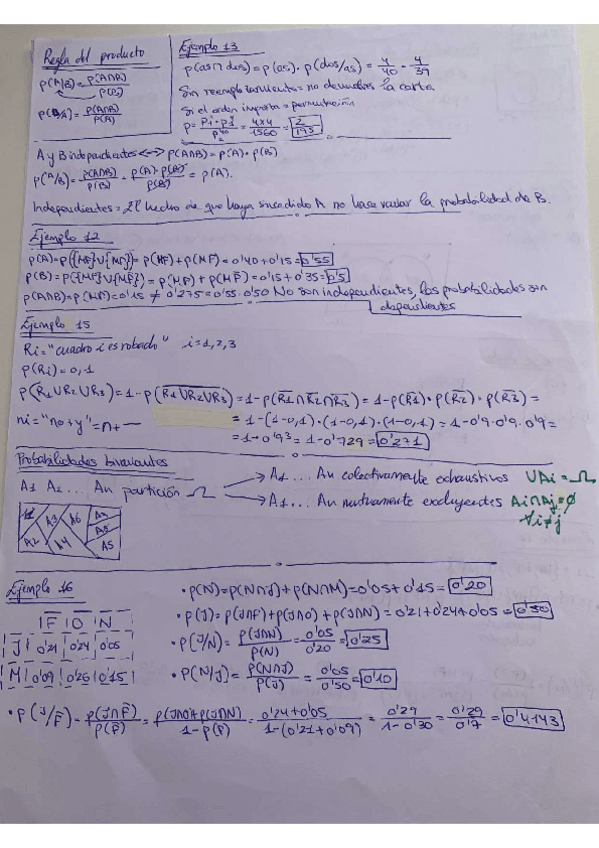 Regla del producto
p(A|B) = p(A∩B) / p(B)
p(B/A) = p(A∩B) / p(A)
Ejemplo 13
p(as∩dos) = p(as) · p(dos/as) = 4/40 · 4/39
Sin reemplazamiento = no devuelves la carta
Si el orden importa = permutación
= 4x4 / 1560 = 2/195
A y B independientes <-> p(A∩B) = p(A) · p(B)
p(A/B) = p(A∩B) / p(B) = p(A) · p(B) / p(B) = p(A).
Independientes = El hecho de que haya sucedido A no hace variar la probabilidad de B.
Ejemplo 12
p(B) = p({MF}∪{M̄F}) = p(MF) + p(M̄F) = 0'15 + 0'35 = 0'5
p(A∩B) = p(MF) = 0'15 ≠ 0'275 = 0'55 · 0'50 No son independientes, las probabilidades son
dependientes
Ejemplo 15
Ri = "cuadro i es robado" i = 1, 2, 3
p(Ri) = 0,1
p(R1∪R2∪R3) = 1 - p(R1∪R2∪R3) = 1 - p(R̄1∩R̄2∩R̄3) = 1 - p(R̄1) · p(R̄2) · p(R̄3) =
= 1 - (1-0,1) · (1-0,1) · (1-0,1) = 1 - 0'9 · 0'9 · 0'9 =
ni = "no + y" = n +
= 1 - 0'9³ = 1 - 0'729 = 0'271
Probabilidades bivariantes
A1 A2 ... An partición Ω
A1 .... An colectivamente exhaustivos ∪Ai = Ω
A1 ... An mutuamente excluyentes Ai∩Aj = ∅
∀i≠j
A3 A6
A2 A4 A5
Ejemplo 16
F O N
J 0'21 0'24 0'05
M 0'09 0'26 0'15
• p(N) = p(N∩J) + p(N∩M) = 0'05 + 0'15 = 0'20
• p(J) = p(J∩F) + p(J∩O) + p(J∩N) = 0'21 + 0'24 + 0'05 = 0'50
• p(J/N) = p(J∩N) / p(N) = 0'05 / 0'20 = 0'25
• p(N/J) = p(N∩J) / p(J) = 0'05 / 0'50 = 0'10
• p(J/F̄) = p(J∩F̄) / p(F̄) = p(J∩O) + p(J∩N) / 1 - p(F) = 0'24 + 0'05 / 1 - (0'21 + 0'09) = 0'29 / 1 - 0'30 = 0'29 / 0'7 = 0'4143